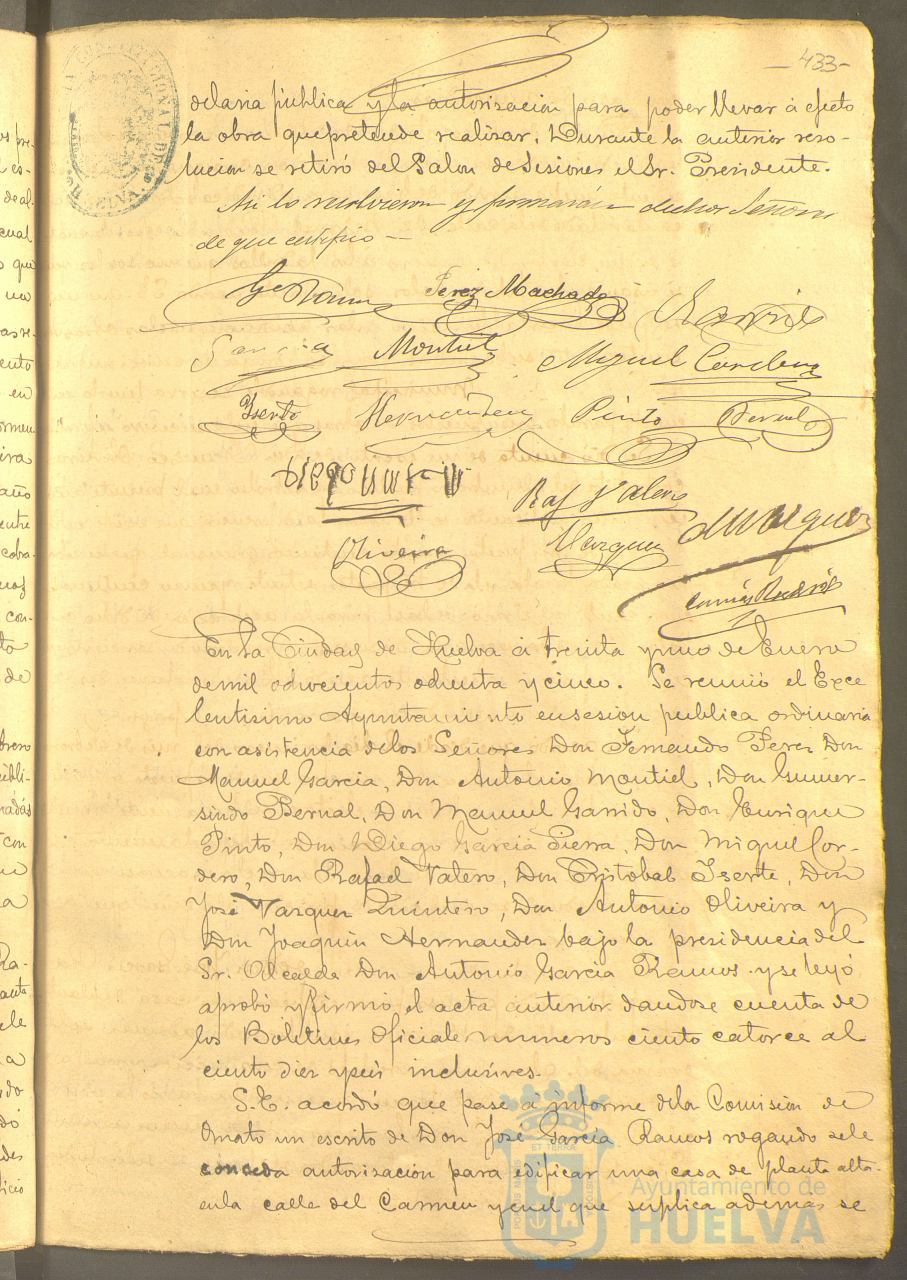 433-
delavia pública y la autorización para poder llevar á efeto
la obra que pretende realizar. Durante la anterior reso-
lucion se retiró del Salon de Sesiones el Sr. Presidente.
Asi lo resolvieron y firmarán dichos Señores
de que certifico —
Ga Ramos Perez Machado Garrido
Garcia Montiel Miguel Cordero
Iserte Hernandez Pinto Bernal
Raf Valero
Oliveira Vazquez
En la Ciudad de Huelva á treinta y uno de Enero
demil ochocientos ochenta y cinco. Se reunió el Exce
lentisimo Ayuntamiento ensesion publica ordinaria
con asistencia delos Señores Don Fernando Perez Don
Manuel Garcia, Don Antonio Montiel, Don Gumer-
sindo Bernal, Don Manuel Garrido, Don Enrique
Pinto, Don Diego Garcia Pierra, Don Miguel Cor-
dero, Don Rafael Valero, Don Cristobal Iserte, Don
José Vazquez Quintero, Don Antonio Oliveira y
Don Joaquin Hernandez bajo la presidencia del
Sr. Alcalde Don Antonio Garcia Ramos y se leyó
aprobó y firmó el acta anterior dandose cuenta de
los Boletines Oficiales numeros ciento catorce al
ciento diez y seis inclusives.
S.E. acordó que pase á informe dela Comisión de
Ornato un escrito de Don José Garcia Ramos rogando sele
conceda autorización para edificar una casa de planta alta
enla calle del Carmen y enel que suplica además se
Ayuntamiento de
HUELVA